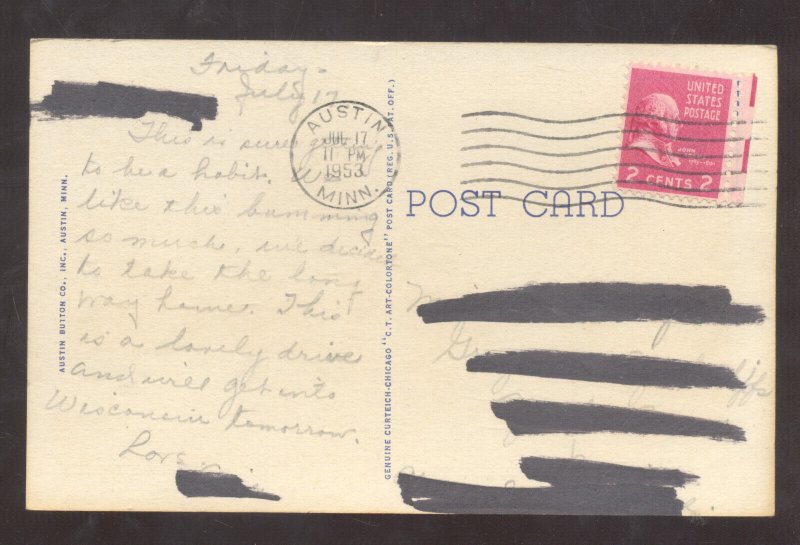 Friday -
July 17
This is sure going
to be a habit. We
like this bumming
so much, we decided
to take the long
way home. This
is a lovely drive
and will get into
Wisconsin tomorrow.
Love
AUSTIN BUTTON CO., INC., AUSTIN, MINN.
AUSTIN
JUL 17
11 PM
1953
MINN.
GENUINE CURTEICH-CHICAGO "C.T. ART-COLORTONE" POST CARD (REG. U.S. PAT. OFF.)
UNITED
STATES
POSTAGE
JOHN
2 CENTS 2
POST CARD